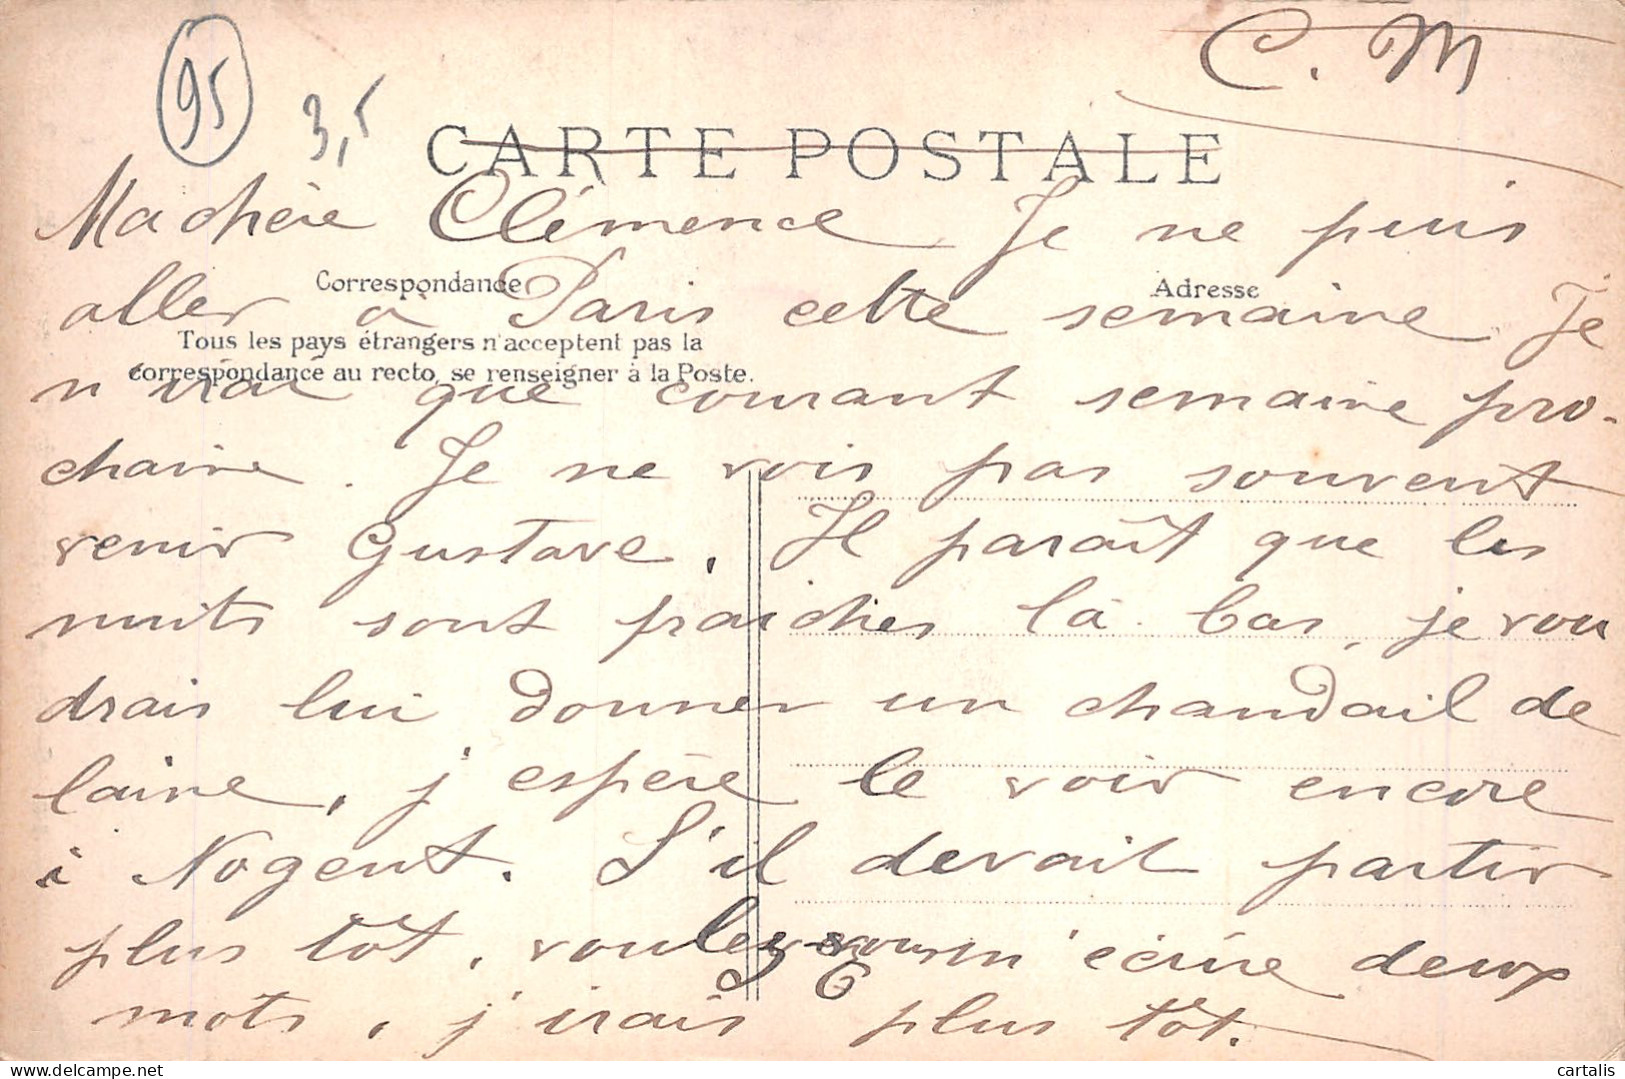 C. M
95
3,5
CARTE POSTALE
Ma chère Clémence Je ne puis
Correspondance
Adresse
aller à Paris cette semaine Je
Tous les pays étrangers n'acceptent pas la
correspondance au recto, se renseigner à la Poste.
n'irai que courant semaine pro-
chaine. Je ne vois pas souvent
venir Gustave. Il paraît que les
nuits sont fraiches là-bas, je vou
drais lui donner un chandail de
laine, j'espère le voir encore
à Nogent. S'il devait partir
plus tôt, voulez-vous m'écrire deux
mots, j'irais plus tôt.
cartalis
delcampe.net